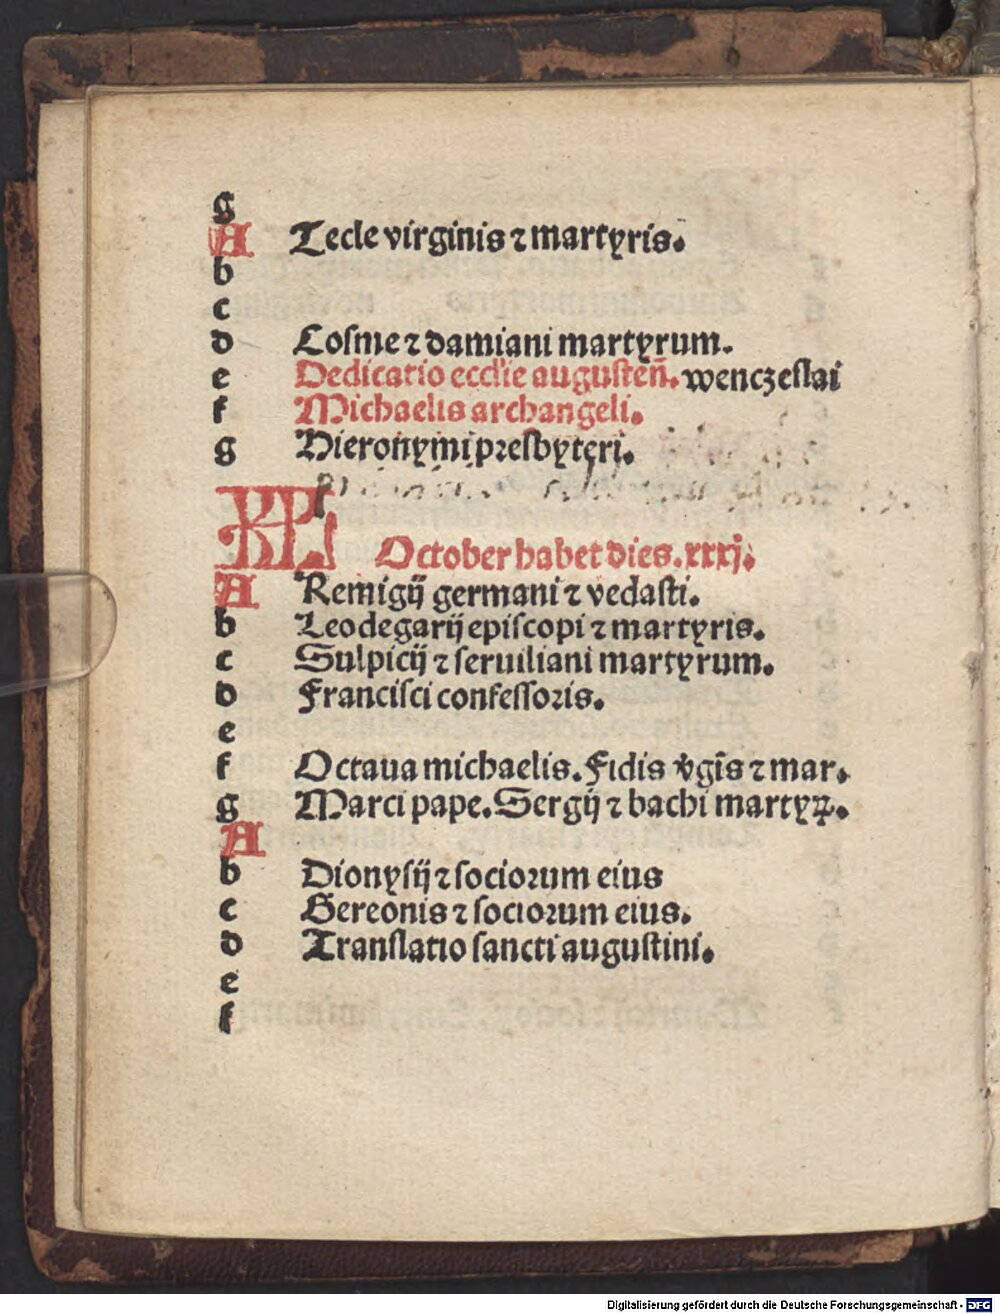 g
A Tecle virginis ⁊ martyris.
b
c
d Cosme ⁊ damiani martyrum.
e Dedicatio eccl'ie augusteñ. wenczeslai
f Michaelis archangeli.
g Hieronymi presbyteri.
KL
October habet dies .xxxj.
A Remigij germani ⁊ vedasti.
b Leodegarij episcopi ⁊ martyris.
c Sulpicij ⁊ seruiliani martyrum.
d Francisci confessoris.
e
f Octaua michaelis. Fidis v̾gīs ⁊ mar.
g Marci pape. Sergij ⁊ bachi martyꝝ.
A
b Dionysij ⁊ sociorum eius
c Gereonis ⁊ sociorum eius.
d Translatio sancti augustini.
e
f
Digitalisierung gefördert durch die Deutsche Forschungsgemeinschaft - DFG